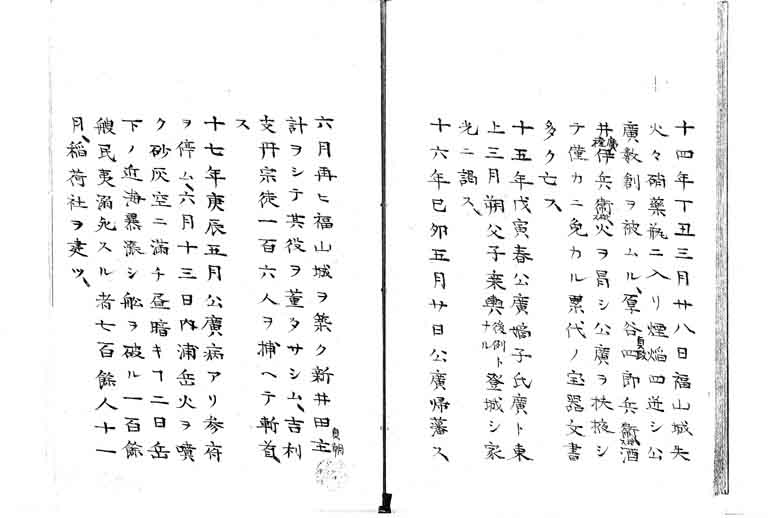 十四年丁丑三月廿八日福山城失
火々硝藥瓶ニ入リ煙焔四迸シ公
廣數創ヲ被ムル、厚谷四郎兵衛貞政酒
井伊兵衛廣種火ヲ冒シ公廣ヲ扶掖シ
テ僅カニ免カル累代ノ宝器文書
多ク亡ス、
十五年戊寅春公廣嫡子氏廣ト東
上三月朔父子乗輿後例トナル登城シ家
光ニ謁ス、
十六年己卯五月廿日公廣帰藩ス、
六月再ヒ福山城ヲ築ク新井田主
計貞朝ヲシテ其役ヲ董タサシム、吉利
支丹宗徒一百六人ヲ捕ヘテ斬首
ス
十七年庚辰五月公廣病アリ参府
ヲ停ム、六月十三日内浦岳火ヲ噴
ク砂灰空ニ満チ昼暗キ丁二日岳
下ノ近海暴漲シ舩ヲ破ル一百餘
艘民夷溺死スル者七百餘人十一
月、稲荷社ヲ建ツ、